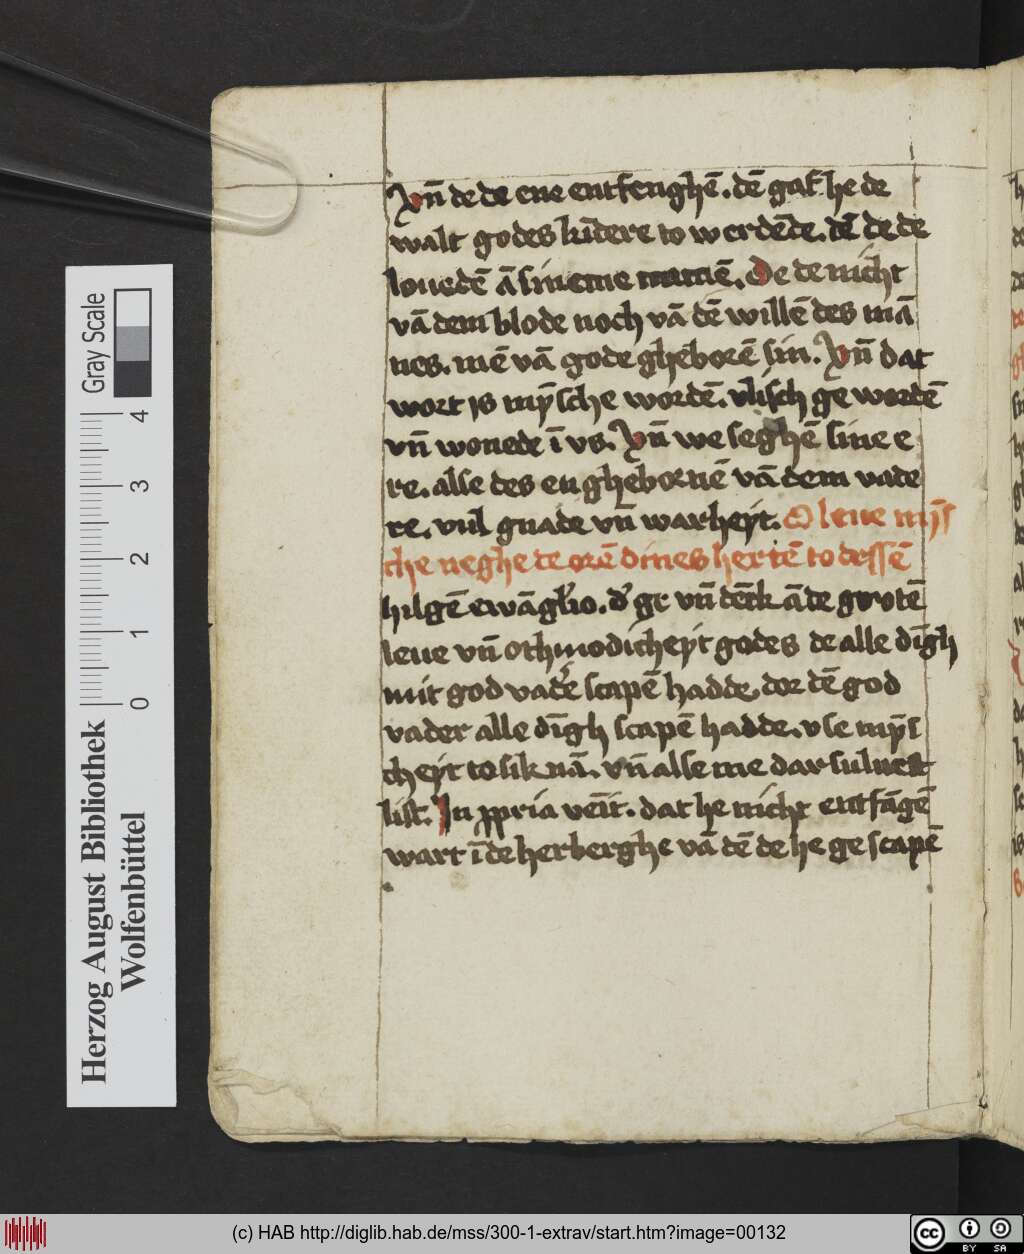 Vn̄ de de ene entfenghē. dē gaf he de
walt godes kīdere to werdēde. dē de de
louedē ā sineme namē. De de nicht
vā dem blode noch vā dē willē des mā
nes. mē vā gode ghēborē sin. Vn̄ dat
wort is mȳsche wordē. vlisch ge wordē
vn̄ wonede ī vs. Vn̄ we seghē sine e
re. alse des en ghebornē vā dem vade
re. vul gnade vn̄ warheyt. O leue mȳs
che neghe de orē dines hertē to dessē
hilgē ewāglio. vn̄ dēck ā de grotē
leue vn̄ othmodicheyt godes de alle dīgh
mit god vadē scapē hadde. dor dē god
vader alle dīgh scapē hadde. vse mȳs
cheyt to sik nā. vn̄ alse me dar sulnest
list. In ppria venit. dat he nicht entfāgē
wart ī de herberghe vā dē de he ge scapē
Gray Scale
4
3
2
1
0
Herzog August Bibliothek
Wolfenbüttel
(c) HAB http://diglib.hab.de/mss/300-1-extrav/start.htm?image=00132
cc
BY SA